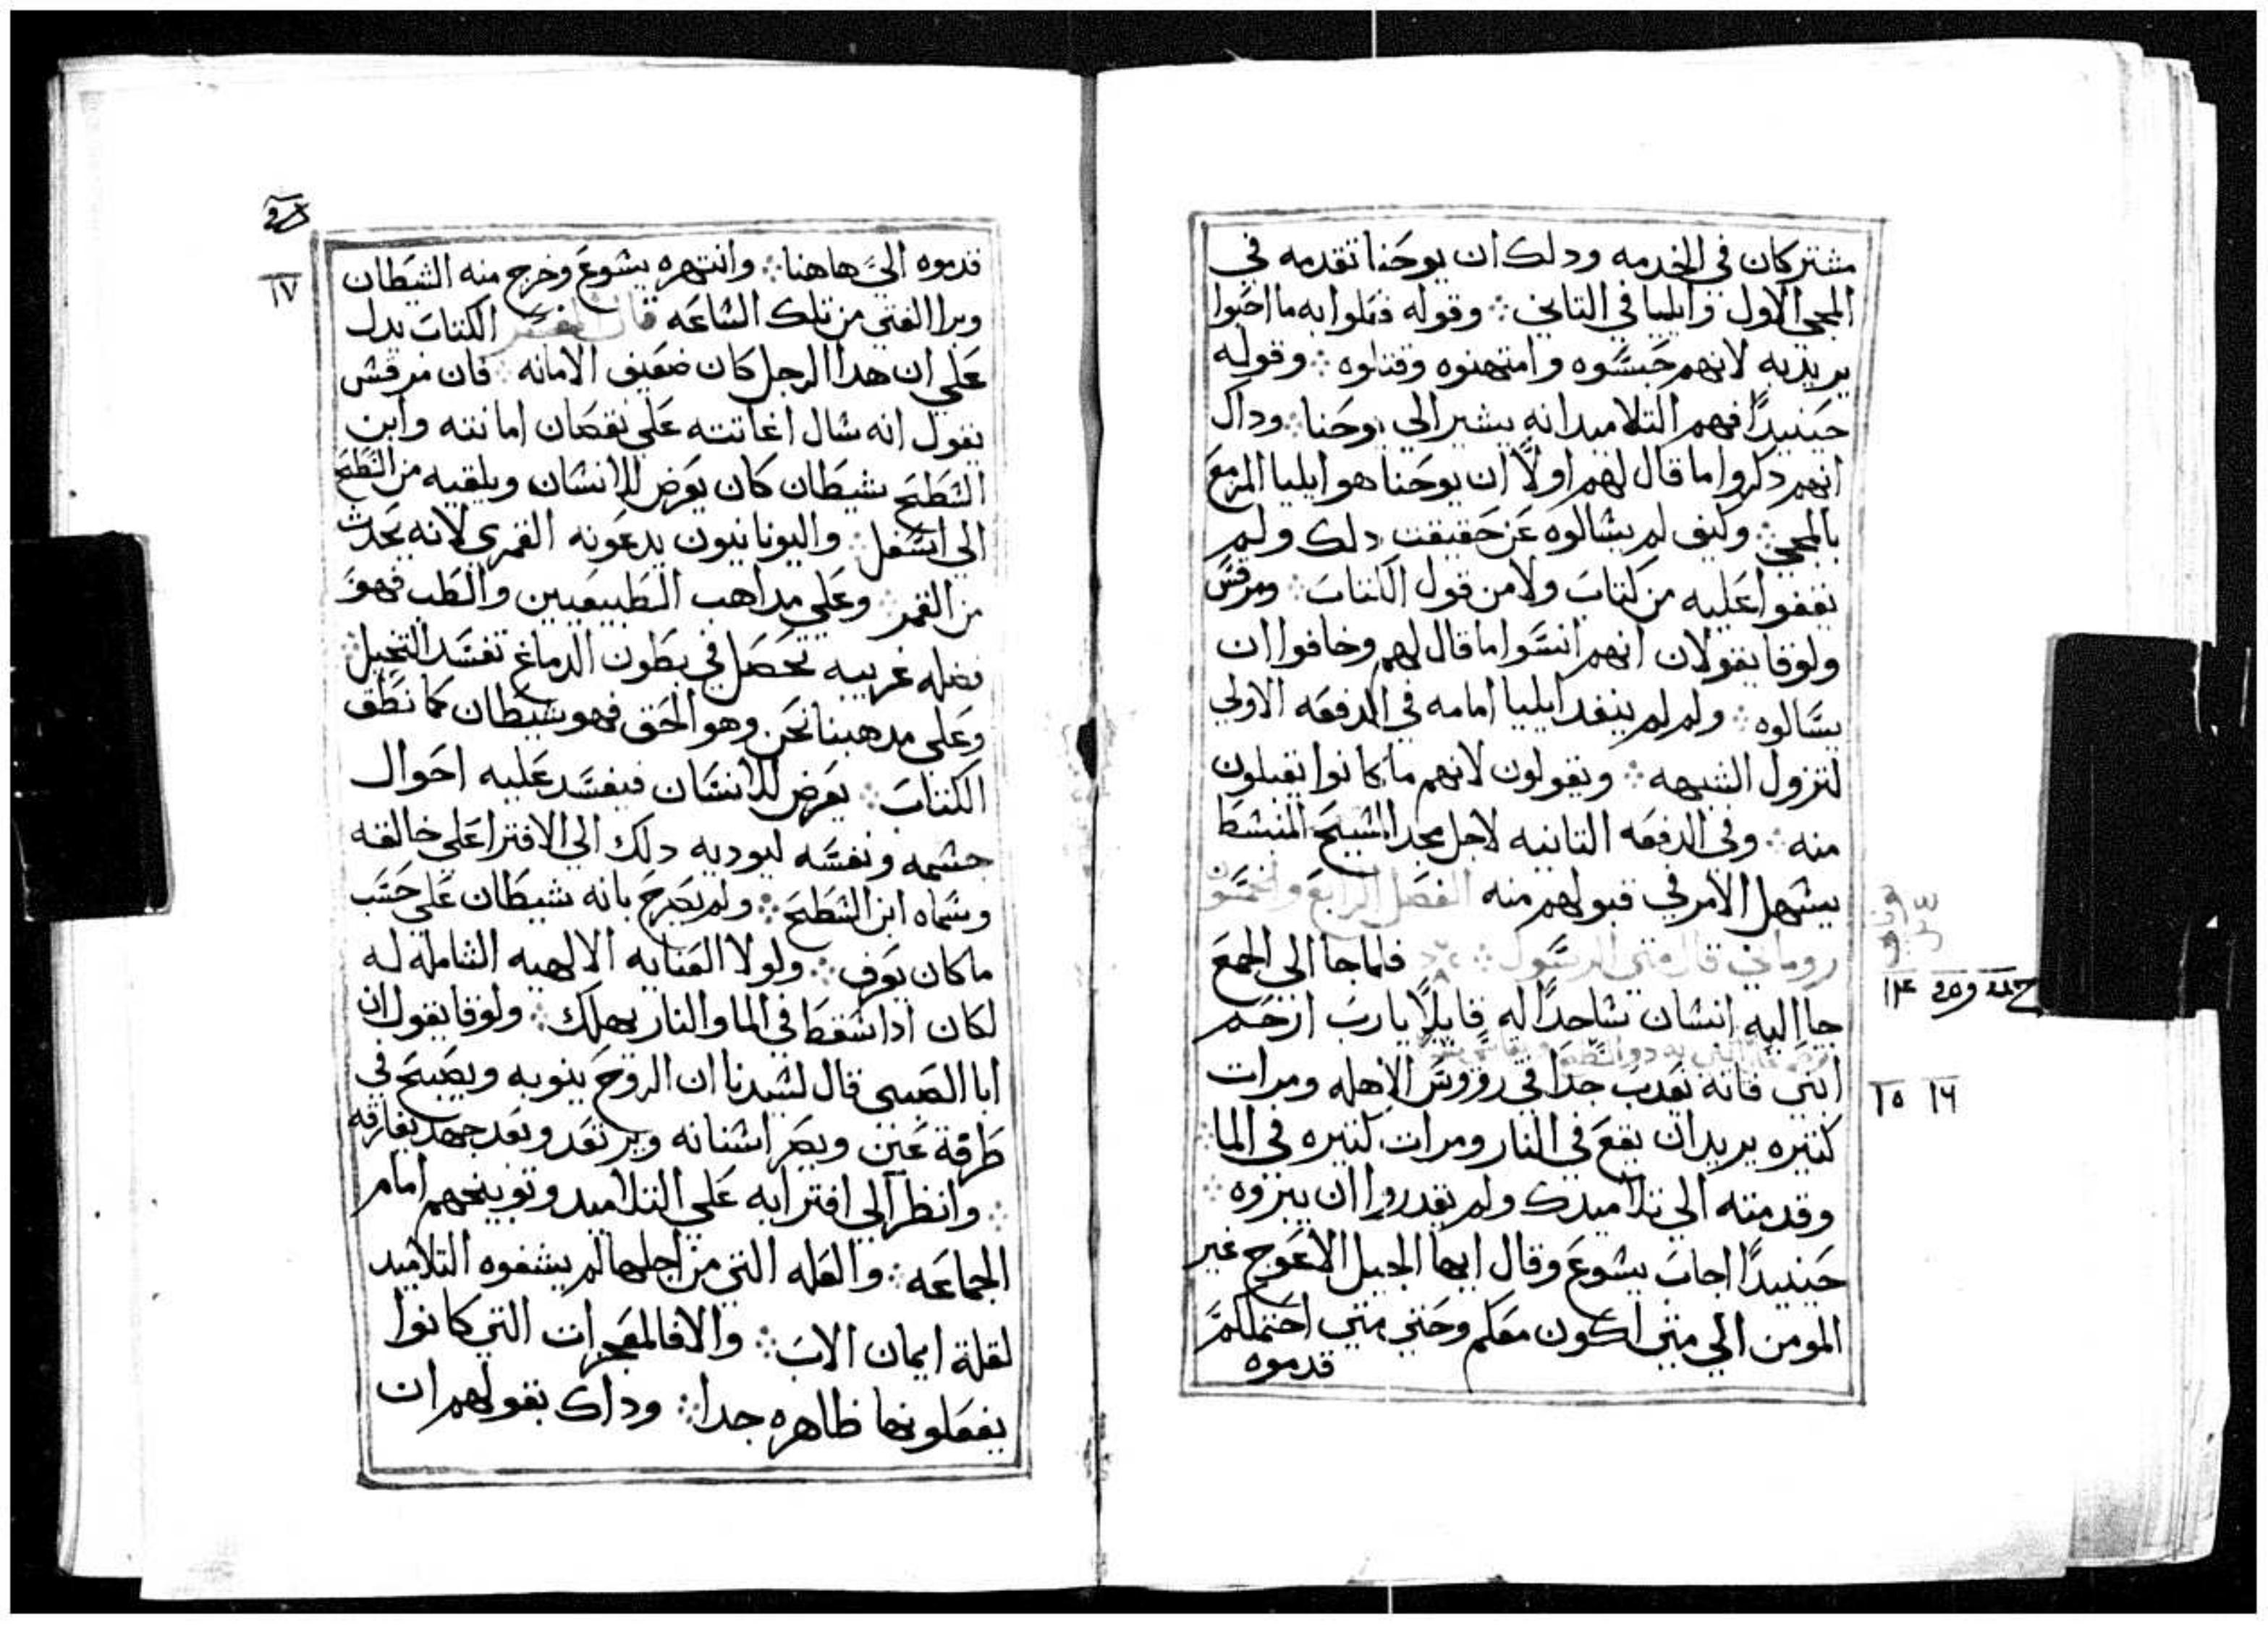 مشتركان في الخدمه ودلك ان يوحنا تقدمه في
المجي الاول وايليا في التاني ۞ وقوله فعلوا به ما احبوا
يريد به لانهم حبسوه وامتهنوه وقتلوه ۞ وقوله
حينيدًا فهم التلاميد انه يشير الي يوحنا ۞ وداك
انهم دكروا ما قال لهم اولًا ان يوحنا هو ايليا المزمع
بالمجي ۞ وكيف لم يسالوه عن حقيقت دلك ولم
يقفوا عليه من كتاب ولا من قول الكتاب ۞ ومرقس
ولوقا يقولان انهم انسوا ما قال لهم وخافوا ان
يسالوه ۞ ولم لم ينفد ايليا امامه في الدفعه الاولي
لتزول الشبهه ۞ ويقولون لانهم ما كانوا يقبلون
منه ۞ وفي الدفعه التانيه لاجل مجد المسيح المنبسط
يسهل الامر في قبولهم منه الفصل الرابع والخمسون
روماني قال متي الرسول ۞ فلما جا الي الجمع
جا اليه انسان ساجدًا له قايلًا يارب ارحم
ابني فانه يعدب جدا في رووس الاهله ومرات
كتيره يريد ان يقع في النار ومرات كتيره في الما ۞
وقدمته الي تلاميدك ولم يقدروا ان يبروه ۞
حينيدًا اجاب يسوع وقال ايها الجيل الاعوج غير
المومن الي متي اكون معكم وحتي متي احتملكم
قدموه
١٤
١٥ ١٦
١٧
قدموه الي هاهنا ۞ وانتهره يسوع وخرج منه الشيطان
وبرا الفتي من تلك الساعه قال المفسر الكتاب يدل
علي ان هدا الرجل كان ضعيف الامانه ۞ فان مرقس
يقول انه سال اغاتته علي نقصان امانته وابن
السطح شيطان كان يعرض للانسان ويلقيه من السطح
الي اسفل ۞ واليونانيون يدعونه القمري لانه يحدث
من القمر ۞ وعلي مداهب الطبيعيين والطب فهو
فضله غريبه تحصل في بطون الدماغ تفسد التخيل ۞
وعلي مدهبنا نحن وهو الحق فهو شيطان كما نطق
الكتاب ۞ يعرض للانسان فيفسد عليه احوال
جسمه ونفسه ليوديه دلك الي الافترا علي خالقه
وسماه ابن السطح ۞ ولم يصرح بانه شيطان علي حسب
ما كان يعرف ۞ ولولا العنايه الالهيه الشامله له
لكان ادا سقط في الما والنار يهلك ۞ ولوقا يقول ان
ابا الصبي قال لسيدنا ان الروح ينوبه ويصيح في
طرقة عين ويصر اسنانه ويرتعد وبعد جهد يفارقه
۞ وانظر الي افترايه علي التلاميد وتوبيخهم امام
الجماعه ۞ والعله التي من اجلها لم يشفوه التلاميد
لقلة ايمان الاب ۞ والا فالمعجزات التي كانوا
يفعلونها ظاهره جدا ۞ وداك بقولهم ان